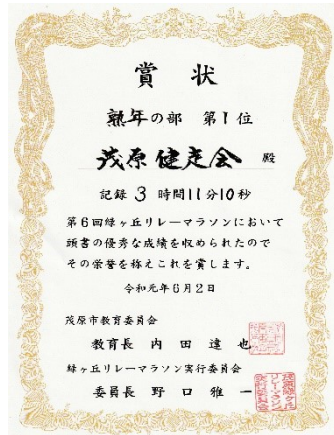 賞状
熟年の部 第1位
茂原健走会 殿
記録 3 時間11分10秒
第6回緑ヶ丘リレーマラソンにおいて
頭書の優秀な成績を収められたので
その栄誉を称えこれを賞します。
令和元年6月2日
茂原市教育委員会
教育長 内田達也
緑ヶ丘リレーマラソン実行委員会
委員長 野口雅一